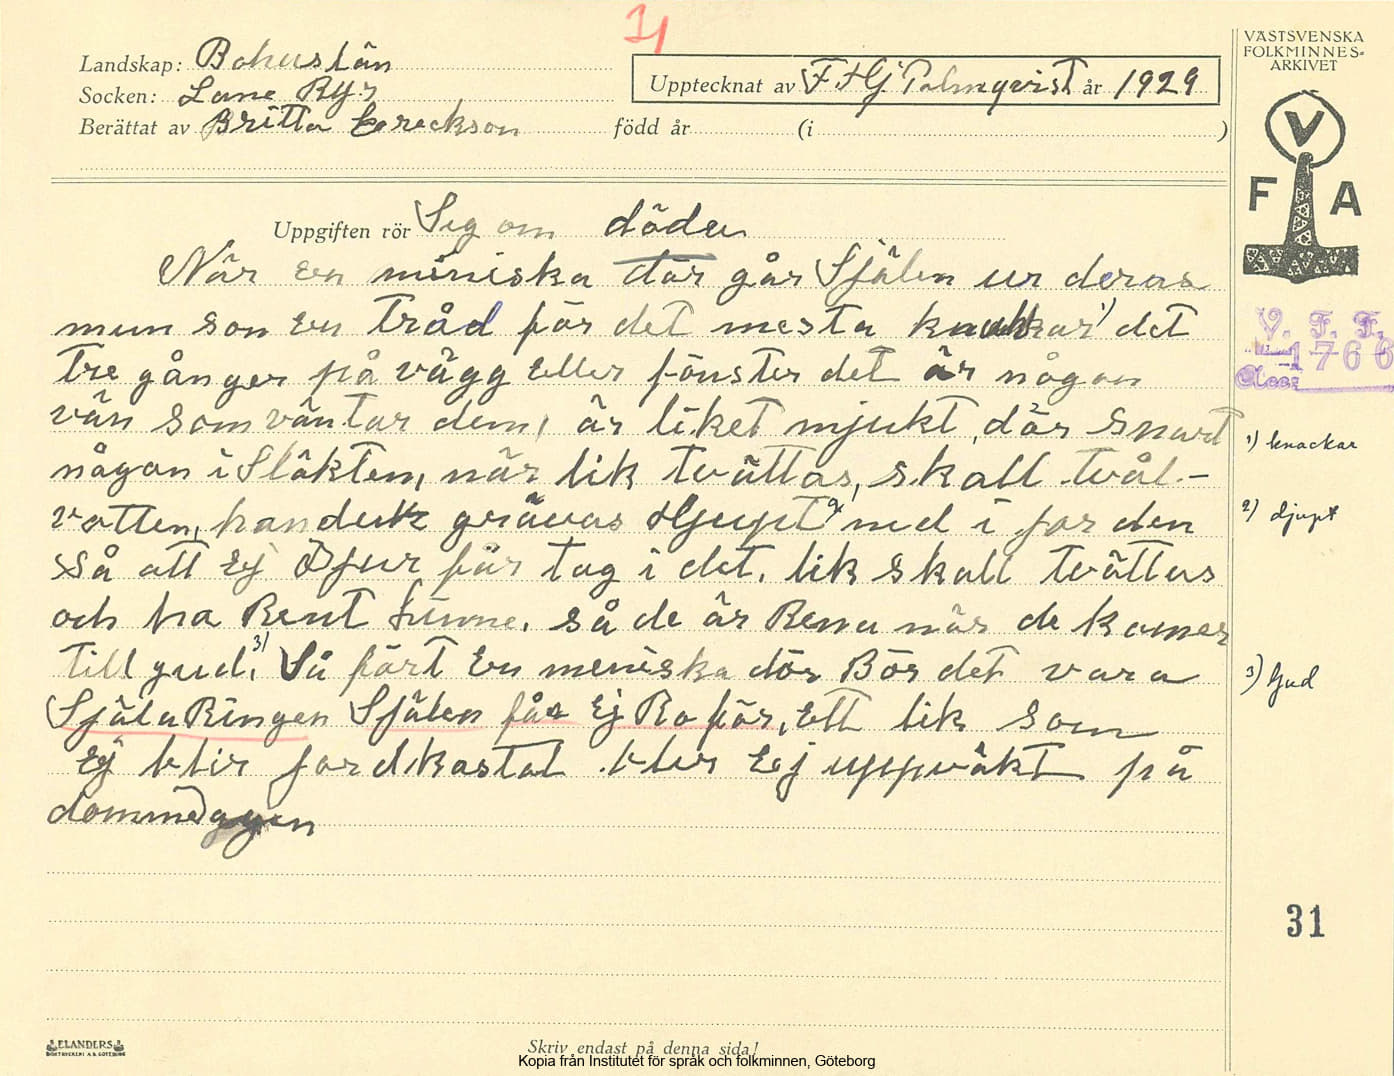 31
Landskap: Bohuslän
Socken: Lane Ryr
Berättat av Britta Ereckson född år (i )
Upptecknat av F H Gj Palmqvist år 1929
VÄSTSVENSKA
FOLKMINNES-
ARKIVET
V
F A
V. F. F.
1766
Acc:
Uppgiften rör Seg om döden
När en miniska dör går Själen ur deras
mun som en tråd för det mesta knakkar 1) det
tre gånger på vägg eller fönster det är någon
vän som väntar dem, är liket mjukt, dör snart
någon i Släkten, när lik tvättas, skall tvål-
vatten, handuk grävas djupt 2) ned i jorden
så att Ej Djur får tag i det. lik skall tvättas
och ha Rent Linne. så de är Rena när de komer
till gud. 3) Så fort En meniska dör Bör det vara
SjälaRingen Själen får Ej Ro för, Ett lik som
Ej blir jordkastat blir Ej uppväkt på
domme dagen
1) knackar
2) djupt
3) Gud
31
ELANDERS
BOKTRYCKERI A.B. GÖTEBORG
Skriv endast på denna sida!
Kopia från Institutet för språk och folkminnen, Göteborg